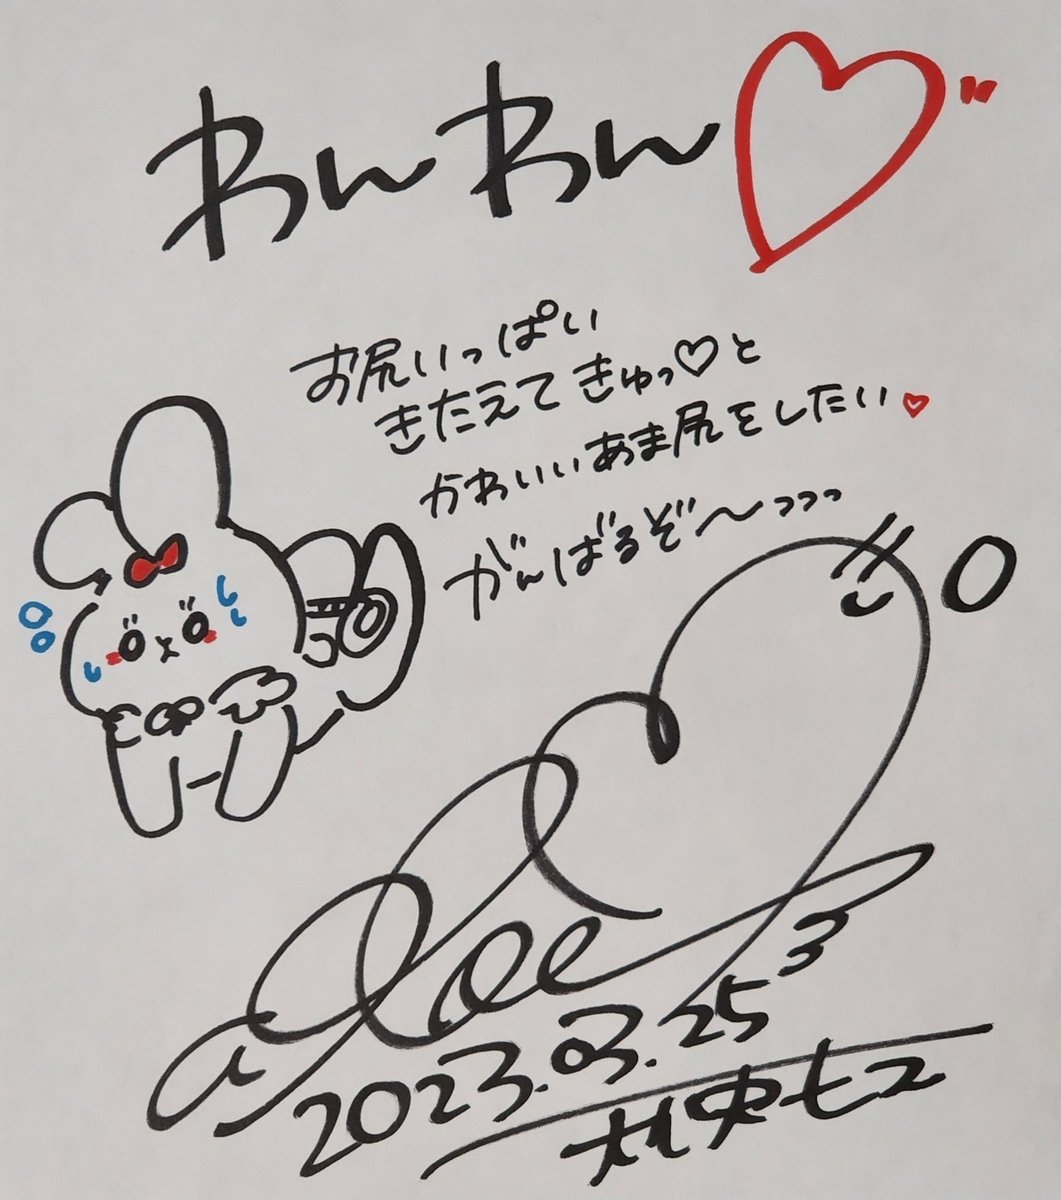 わんわん♡
お尻いっぱい
きたえて きゅっ♡と
かわいいあま尻をしたい♡
がんばるぞ〜っっっ
2023.03.25